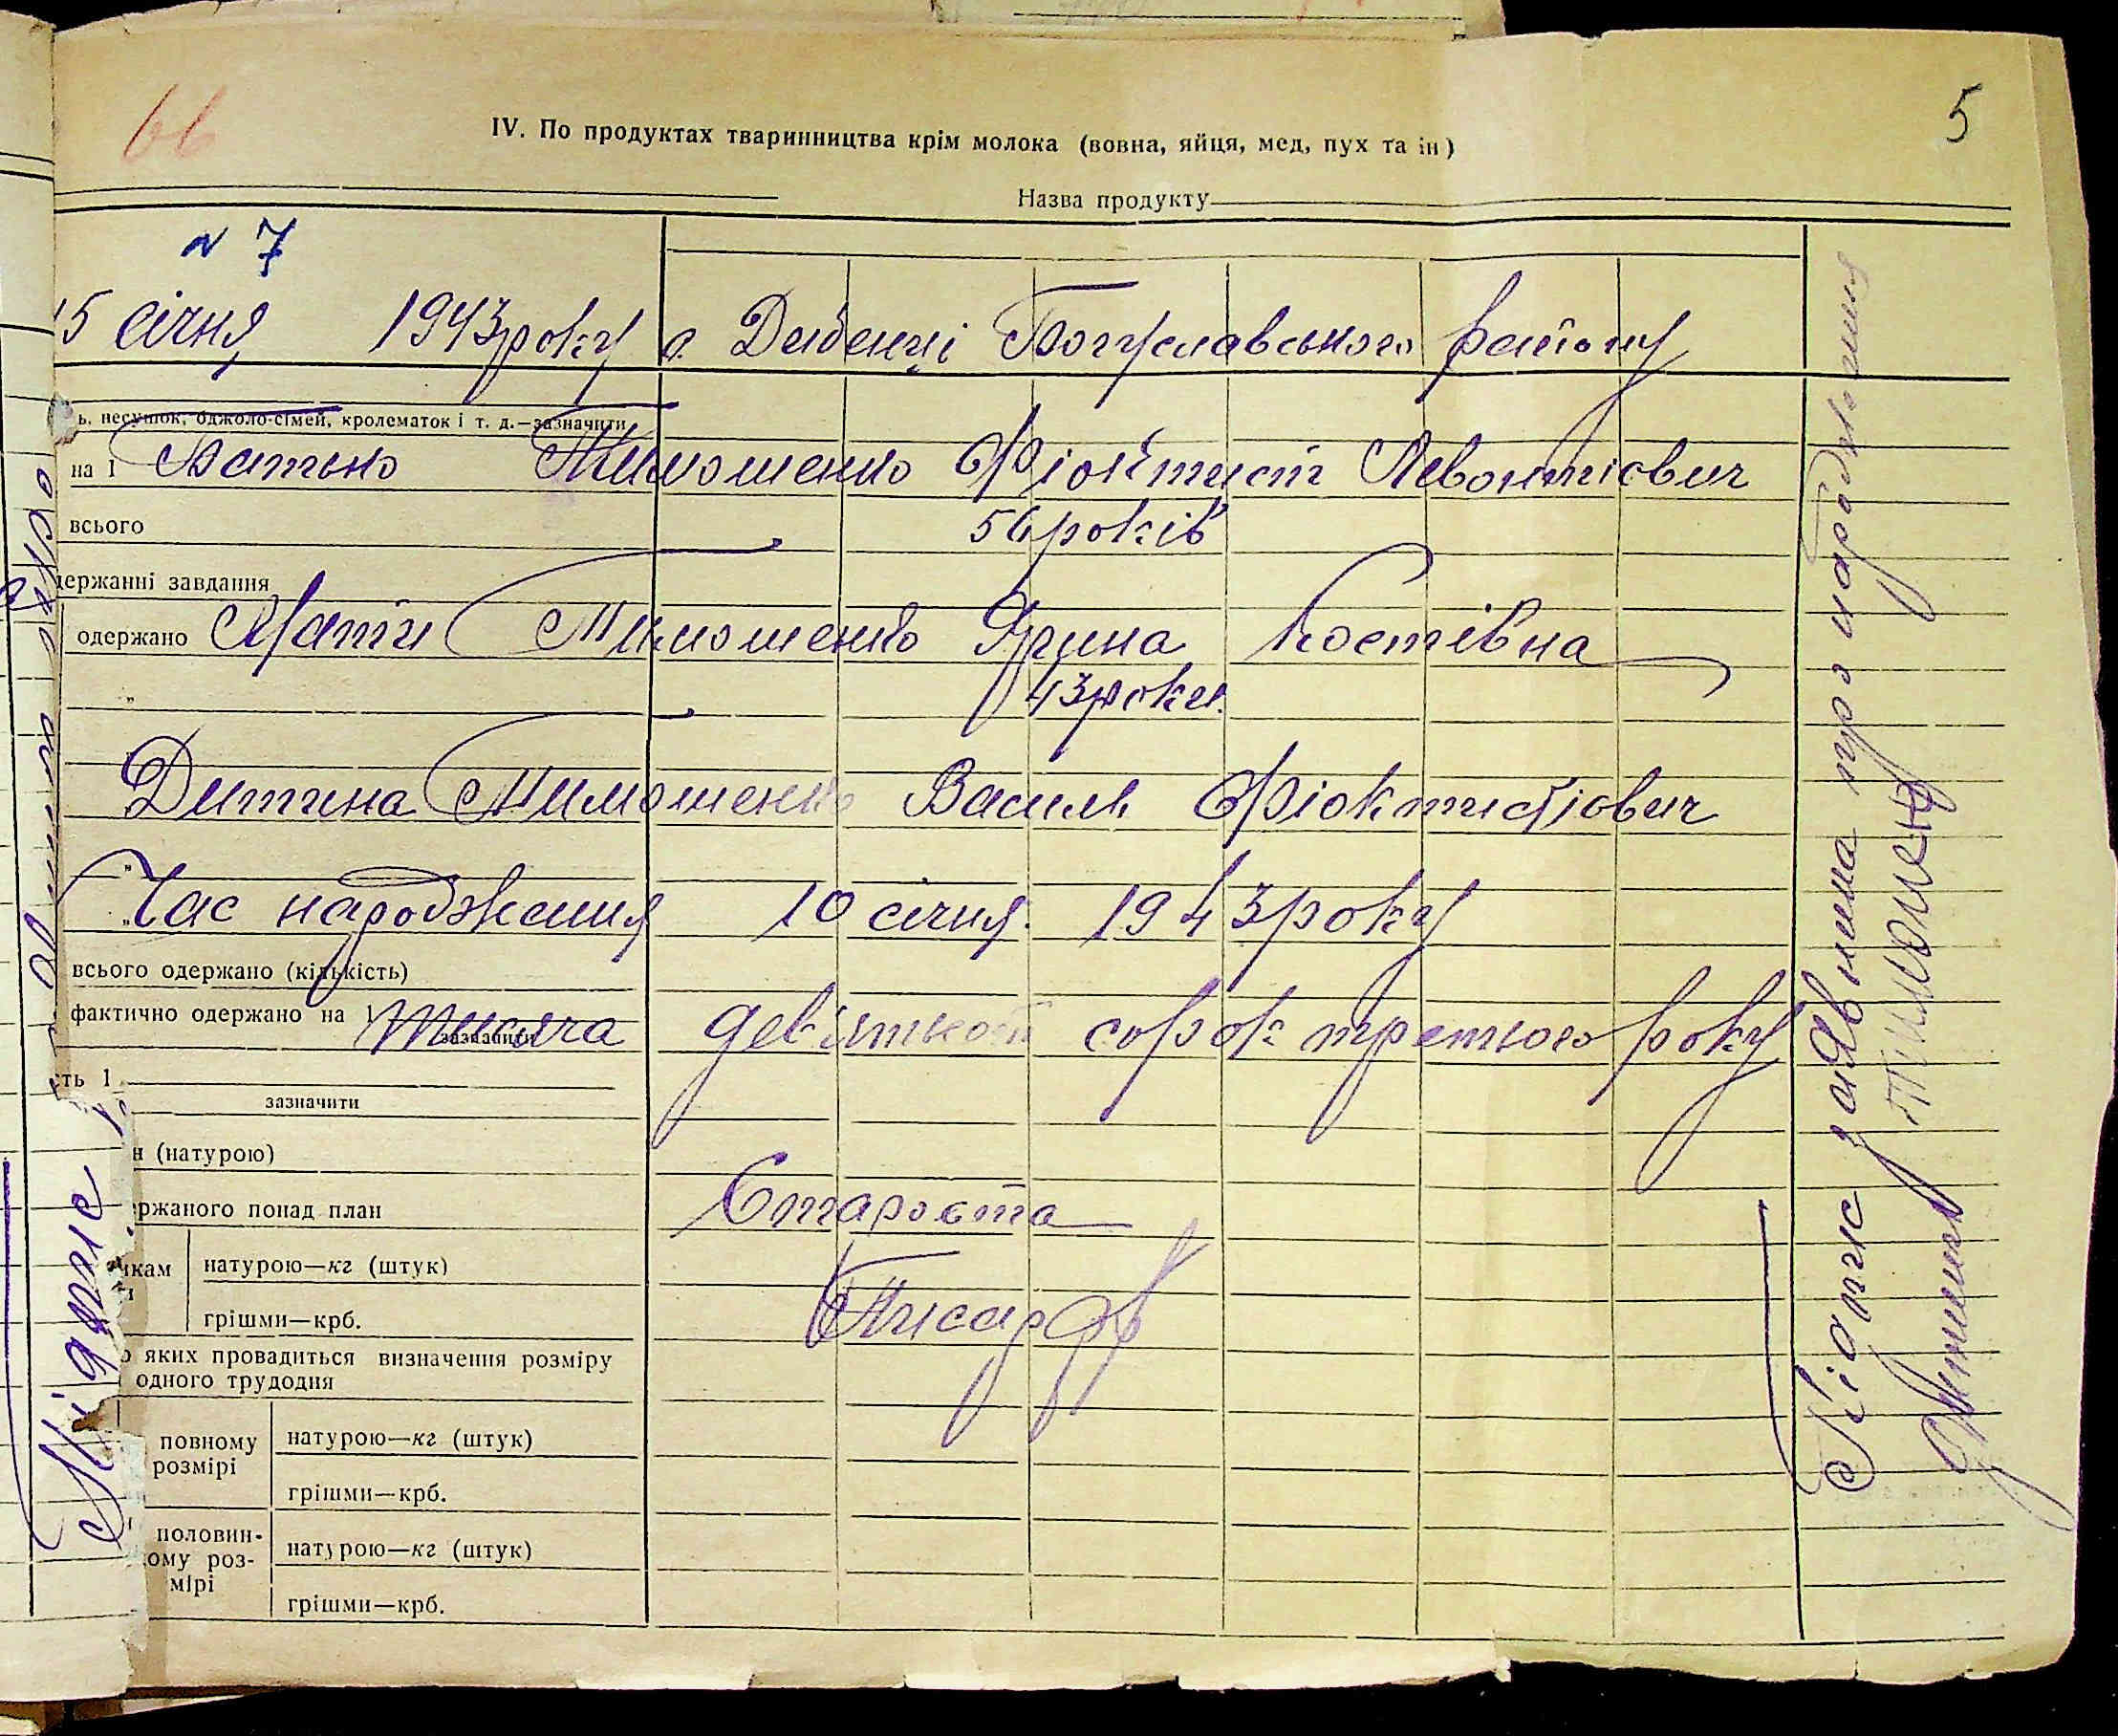 66
5
IV. По продуктах тваринництва крім молока (вовна, яйця, мед, пух та ін)
Назва продукту
N 7
15 січня 1943 року с. Дибенці Богуславського району
ь. несушок, бджоло-сімей, кролематок і т. д.—зазначити
на 1 Батько Тимошенко Фіоктист Левонтіович
всього 56 років
держанні завдання
одержано Мати Тимошенко Ярина Костівна
" 43 роки.
Дитина Тимошенко Василь Фіоктистіович
Час народження 10 січня. 1943 року
всього одержано (кількість)
фактично одержано на 1 тисяча девятьсот сорок третього року
зазначити
сть 1
зазначити
н (натурою)
ржаного понад план Староста
икам натурою—кг (штук)
Писар
грішми—крб.
о яких провадиться визначення розміру
одного трудодня
повному розмірі натурою—кг (штук)
грішми—крб.
половин-
ому роз-
мірі
натурою—кг (штук)
грішми—крб.
Підпис заявника про народження
Тимошенко
Підпис